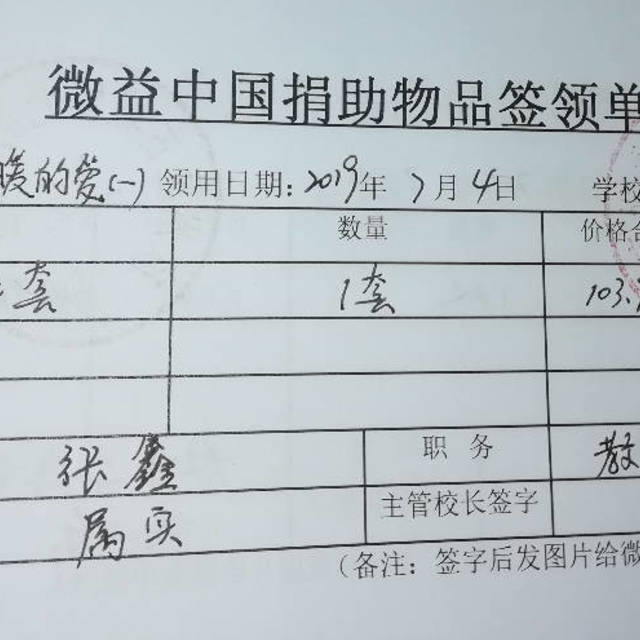 微益中国捐助物品签领单
暖的爱(一) 领用日期: 2019年 7月 4日 学校
数量 价格合
套 1套 103.
张鑫 职务 教
属实 主管校长签字
(备注: 签字后发图片给微